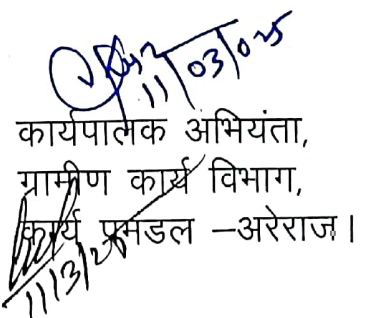 11/03/025
कार्यपालक अभियंता,
ग्रामीण कार्य विभाग,
कार्य प्रमंडल –अरेराज।
11/3/25